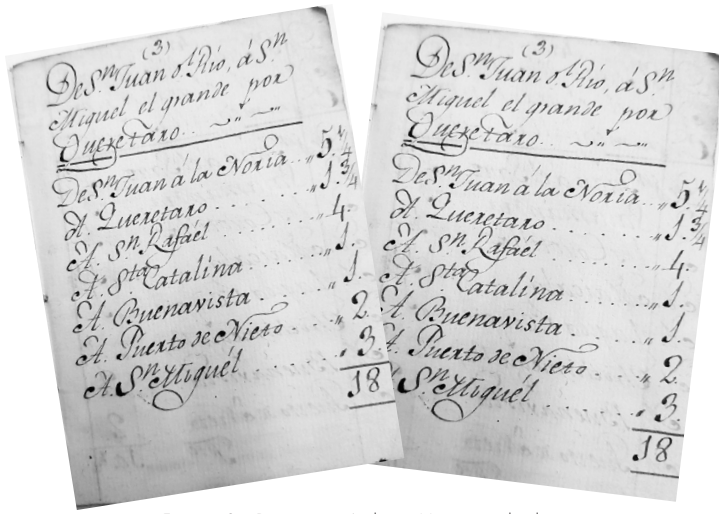 (3)
De S.n Juan dl Rio, á S.n
Miguel el grande por
Queretaro..
De S.n Juan á la Noria.. „ 5. 1/4
A. Queretaro . . . . . . „ 1. 3/4
A. S.n Rafaél . . . . . . „ 4.
A. Sta Catalina . . . . . „ 1.
A. Buenavista . . . . . . „ 1.
A. Puerto de Nieto . . . „ 2
A. S.n Miguél . . . . . „ 3
18
(3)
De S.n Juan dl Rio, á S.n
Miguel el grande por
Queretaro..
De S.n Juan á la Noria.. „ 5. 1/4
A. Queretaro . . . . . . „ 1. 3/4
A. S.n Rafaél . . . . . . „ 4.
A. Sta Catalina . . . . . „ 1.
A. Buenavista . . . . . . „ 1.
A. Puerto de Nieto . . . „ 2
A. S.n Miguél . . . . . „ 3
18